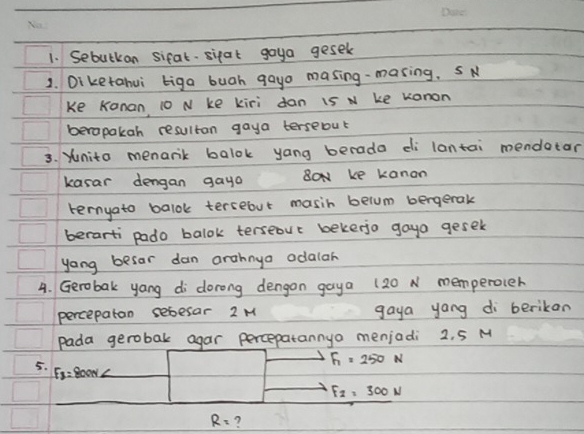 No.
Date:
1. Sebutkan sifat-sifat gaya gesek
2. Diketahui tiga buah gaya masing-masing, 5 N
ke kanan, 10 N ke kiri dan 15 N ke kanan
berapakah resultan gaya tersebut
3. Yunita menarik balok yang berada di lantai mendatar
kasar dengan gaya 80N ke kanan
ternyata balok tersebut masih belum bergerak
berarti pada balok tersebut bekerja gaya gesek
yang besar dan arahnya adalah
4. Gerobak yang di dorong dengan gaya 120 N memperoleh
percepatan sebesar 2 M gaya yang di berikan
pada gerobak agar percepatannya menjadi 2,5 M
5. F3=800N F1 = 250 N
F2 = 300 N
R = ?